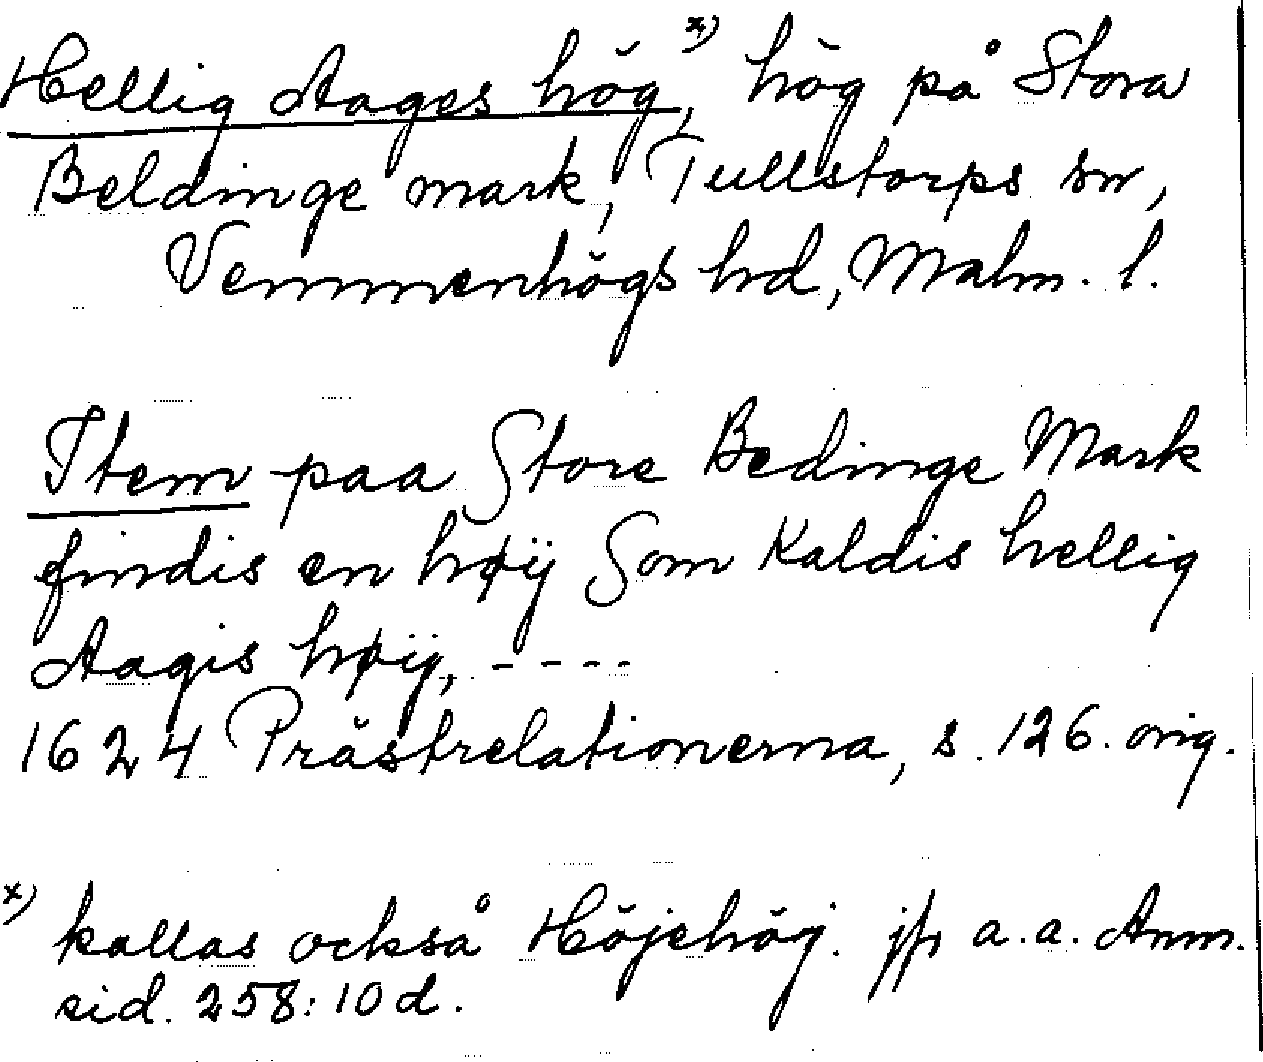 Hellig Aages hög,ˣ⁾ hög på Stora
Beldinge mark, Tullstorps sn,
Vemmenhögs hd, Malm. l.
Item paa Store Bedinge Mark
findis en høÿ Som Kaldis hellig
Aagis høÿ, ----
1624 Prästrelationerna, s. 126. orig.
ˣ⁾ kallas också Höjehög. jfr a.a. Anm.
sid. 258:10d.